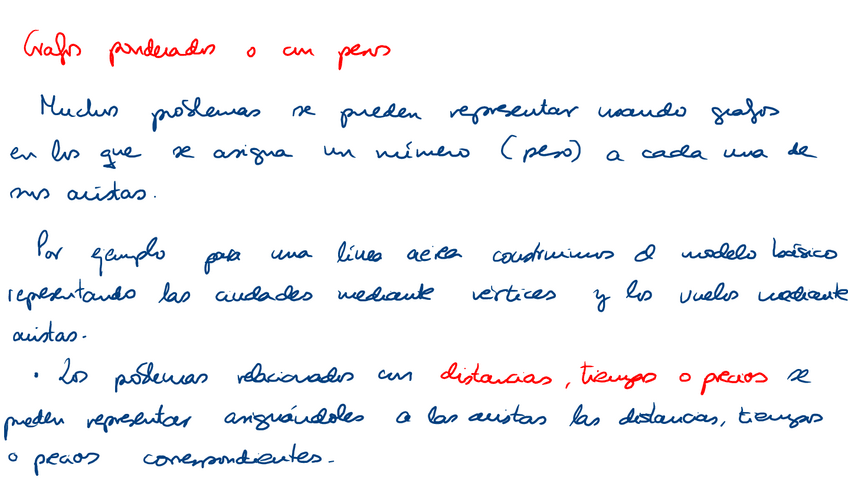 Grafos ponderados o con pesos
Muchos problemas se pueden representar usando grafos
en los que se asigna un número (peso) a cada una de
sus aristas.
Por ejemplo para una línea aérea construimos el modelo básico
representando las ciudades mediante vértices y los vuelos mediante
aristas.
• Los problemas relacionados con distancias, tiempos o precios se
pueden representar asignándoles a las aristas las distancias, tiempos
o precios correspondientes.